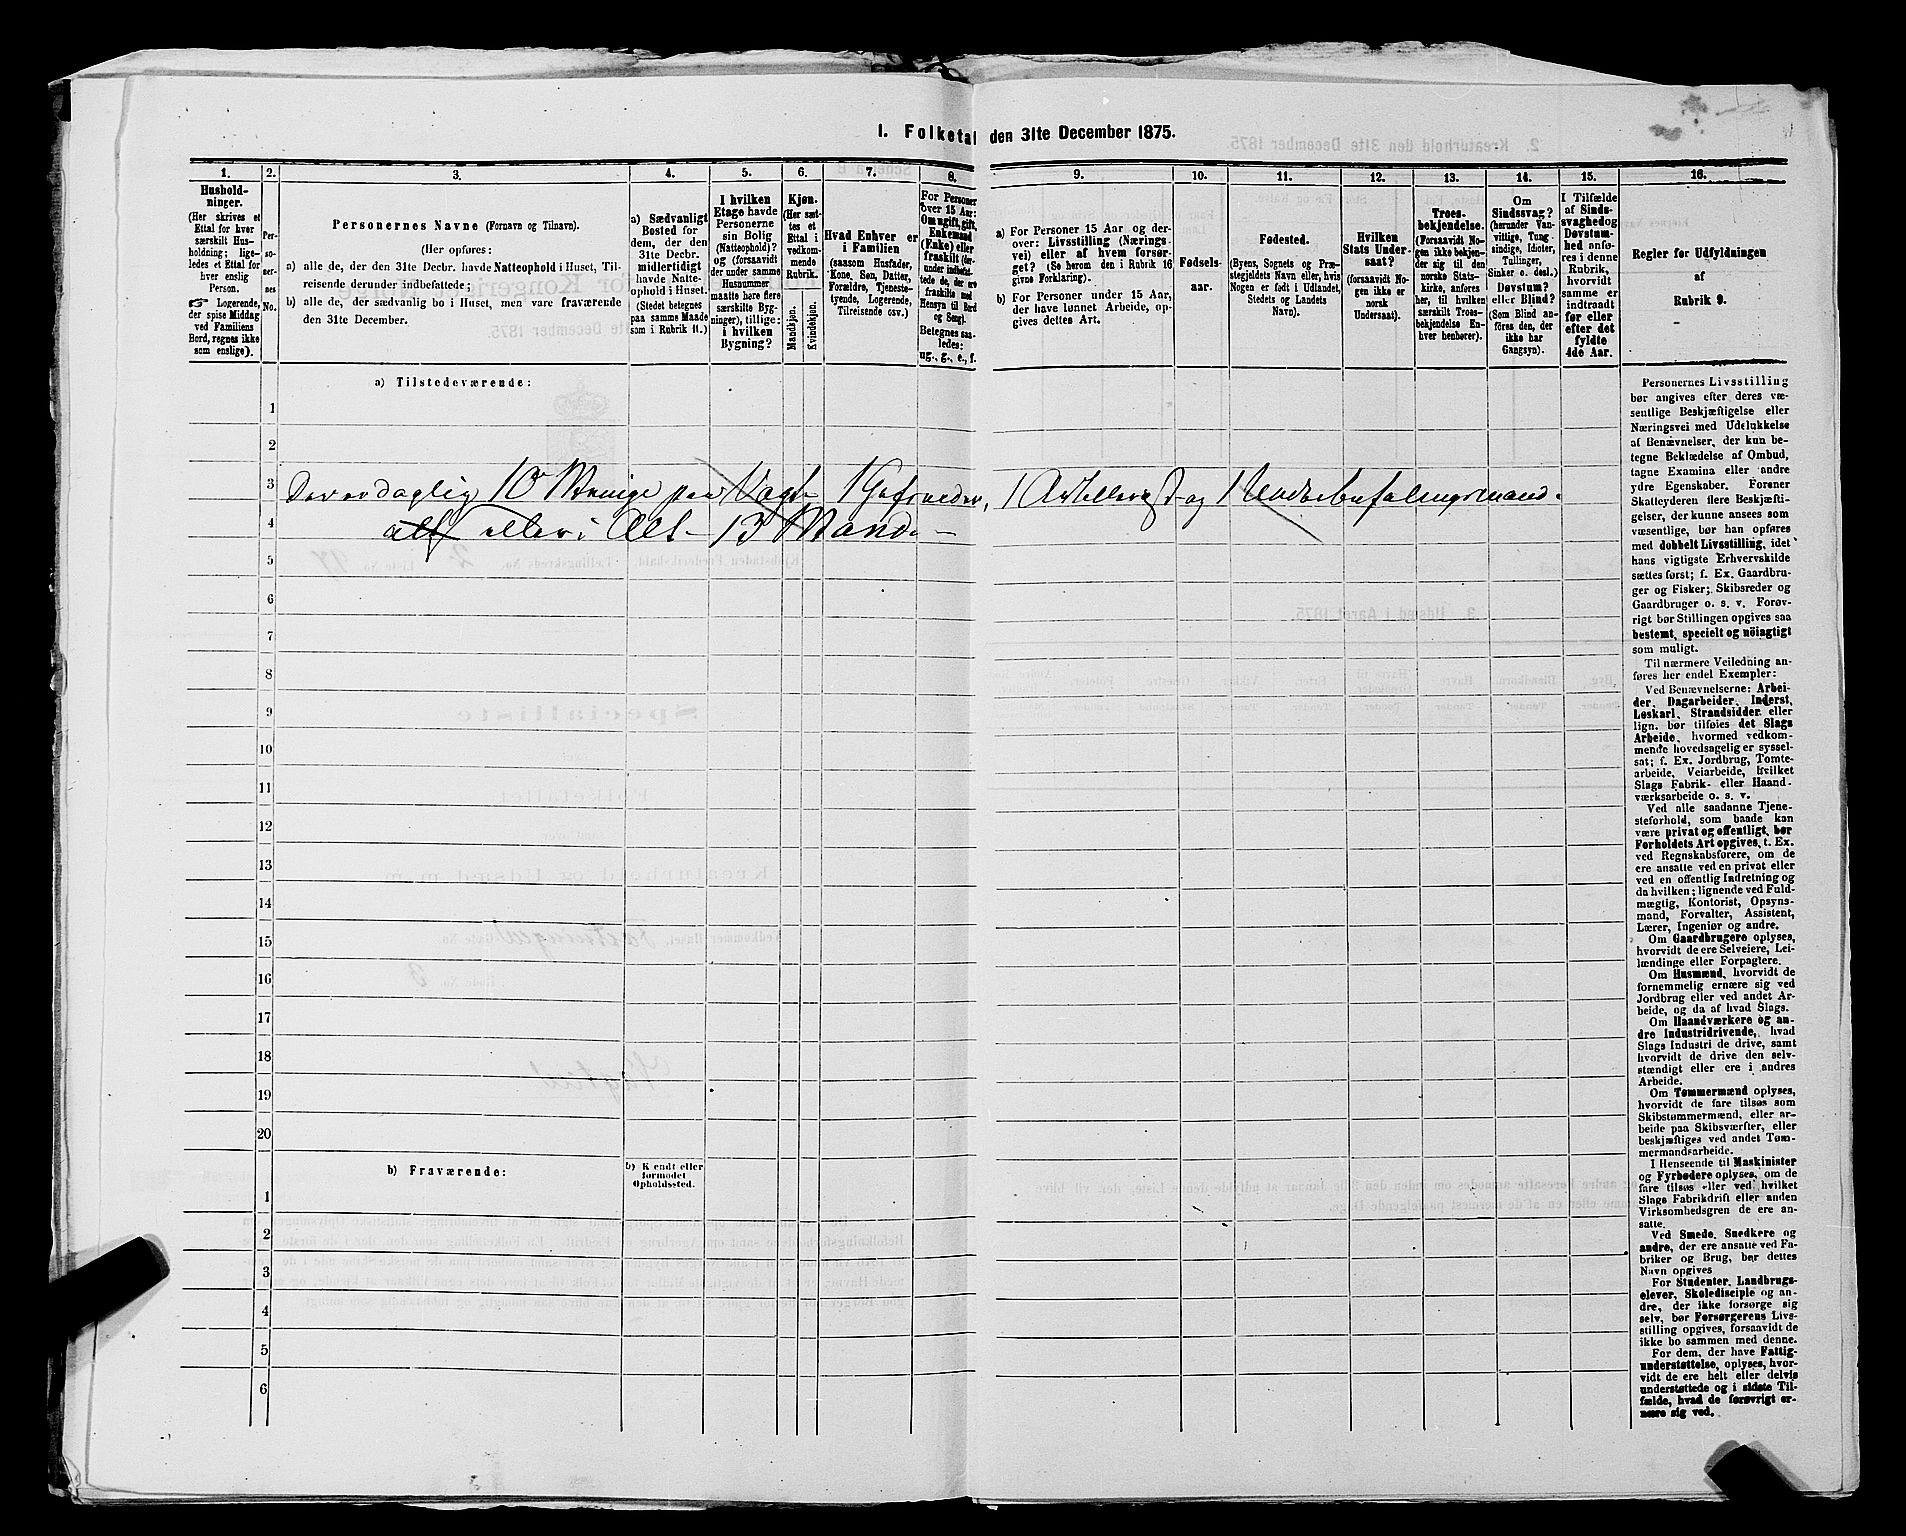 1. Folketal den 31te December 1875.
1.
Hushold-
ninger.
(Her skrives et
Ettal for hver
særskilt Hus-
holdning; lige-
ledes et Ettal for
hver enslig
Person.
☞ Logerende,
der spise Middag
ved Familiens
Bord, regnes ikke
som enslige).
2.
Per-
so-
ner-
nes
No.
3.
Personernes Navne (Fornavn og Tilnavn).
(Her opføres:
a) alle de, der den 31te Decbr. havde Natteophold i Huset, Til-
reisende derunder indbefattede;
b) alle de, der sædvanlig bo i Huset, men vare fraværende
den 31te December.
4.
a) Sædvanligt
Bosted for
dem, der den
31te Decbr.
midlertidigt
havde Natte-
ophold i Huset.
(Stedet betegnes
paa samme Maade
som i Rubrik 11.)
5.
I hvilken
Etage havde
Personerne
sin Bolig
(Natteophold)?
og (forsaavidt
der under samme
Husnummer
maatte høre flere
særskilte Byg-
ninger), tillige:
i hvilken
Bygning?
6.
Kjøn.
(Her sæt-
tes et
Ettal i
vedkom-
mende
Rubrik.
Mandkjøn.
Kvindekjøn.
7.
Hvad Enhver er
i Familien
(saasom Husfader,
Kone, Søn, Datter,
Forældre, Tjeneste-
tyende, Logerende,
Tilreisende osv.)
8.
For Personer
over 15 Aar:
Om ugift, gift,
Enkemand
(Enke) eller
fraskilt
Betegnes saa-
ledes:
ug., g., e., f.
9.
a) For Personer 15 Aar og der-
over: Livsstilling (Nærings-
vei) eller af hvem forsør-
get? (Se herom den i Rubrik 16
givne Forklaring).
b) For Personer under 15 Aar,
der have lønnet Arbeide, op-
gives dettes Art.
10.
Fødsels-
aar.
11.
Fødested.
(Byens, Sognets og Præ-
stegjeldets Navn eller, hvis
Nogen er født i Udlandet,
Stedets og Landets
Navn).
12.
Hvilken
Stats Under-
saat?
(forsaavidt No-
gen ikke er
norsk
Undersaat).
13.
Troes-
bekjendelse.
(Forsaavidt No-
gen ikke bekjen-
der sig til den
norske Stats-
kirke, anføres
her, til hvilken
særskilt Troes-
bekjendelse En-
hver henhører).
14.
Om
Sindssvag?
(herunder Van-
vittige, Tung-
sindige, Idioter,
Tullinger,
Sinker o. desl.)
Døvstum?
eller Blind?
(Som Blind an-
føres den, der
ikke har
Gangsyn).
15.
I Tilfælde
af Sinds-
svaghed og
Døvstum-
hed anfø-
res i denne
Rubrik,
hvorvidt
samme er
indtraadt
før eller
efter det
fyldte
4de Aar.
16.
Regler for Udfyldningen
af
Rubrik 9.
a) Tilstedeværende:
1
2
3 Der er daglig 10 Menige paa Vagt 1 Gefreider, 1 Artillerist og 1 Underbefalingsmand
4 alt eller i Alt 13 Mand
5
6
7
8
9
10
11
12
13
14
15
16
17
18
19
20
b) Fraværende:
b) Kjendt eller
formodet
Opholdssted.
1
2
3
4
5
6
Personernes Livsstilling
bør angives efter deres væ-
sentlige Beskjæftigelse eller
Næringsvei med Udelukkelse
af Benævnelser, der kun be-
tegne Beklædelse af Ombud,
tagne Examina eller andre
ydre Egenskaber. Forener
Skatteyderen flere Beskjæfti-
gelser, der kunne ansees som
væsentlige, bør han opføres
med dobbelt Livsstilling, idet
hans vigtigste Erhvervskilde
sættes først; f. Ex. Gaardbru-
ger og Fisker; Skibsreder og
Gaardbruger o. s. v. Forøv-
rigt bør Stillingen opgives saa
bestemt, specielt og nöiagtigt
som muligt.
Til nærmere Veiledning an-
føres her endel Exempler:
Ved Benævnelserne: Arbei-
der, Dagarbeider, Inderst,
Løskarl, Strandsidder eller
lign. bør tilføies det Slags
Arbeide, hvormed vedkom-
mende hovedsagelig er syssel-
sat; f. Ex. Jordbrug, Tomte-
arbeide, Veiarbeide, hvilket
Slags Fabrik- eller Haand-
værksarbeide o. s. v.
Ved alle saadanne Tjene-
steforhold, som baade kan
være privat og offentligt, bør
Forholdets Art opgives, t. Ex.
ved Regnskabsførere, om de
ere ansatte ved en privat eller
ved en offentlig Indretning og
da hvilken; lignende ved Fuld-
mægtig, Kontorist, Opsyns-
mand, Forvalter, Assistent,
Lærer, Ingeniør og andre.
Om Gaardbrugere oplyses,
hvorvidt de ere Selveiere, Lei-
lændinge eller Forpagtere.
Om Husmænd, hvorvidt de
fornemmelig ernære sig ved
Jordbrug eller ved andet Ar-
beide, og da af hvad Slags.
Om Haandværkere og an-
dre Industridrivende, hvad
Slags Industri de drive, samt
hvorvidt de drive den selv-
stændigt eller ere i andres
Arbeide.
Om Tømmermænd oplyses,
hvorvidt de fare tilsøs som
Skibstømmermænd, eller ar-
beide paa Skibsværfter, eller
beskjæftiges ved andet Tøm-
mermandsarbeide.
I Henseende til Maskinister
og Fyrbødere oplyses, om de
fare tilsøs eller ved hvilket
Slags Fabrikdrift eller anden
Virksomhedsgren de ere an-
satte.
Ved Smede, Snedkere og
andre, der ere ansatte ved Fa-
briker og Brug, bør dettes
Navn opgives
For Studenter, Landbrugs-
elever, Skoledisciple og an-
dre, der ikke forsørge sig
selv, bør Forsørgerens Livs-
stilling opgives, forsaavidt de
ikke bo sammen med denne.
For dem, der have Fattig-
understøttelse, oplyses, hvor-
vidt de ere helt eller delvis
understøttede og i sidste Til-
fælde, hvad de forøvrigt er-
nære sig ved.